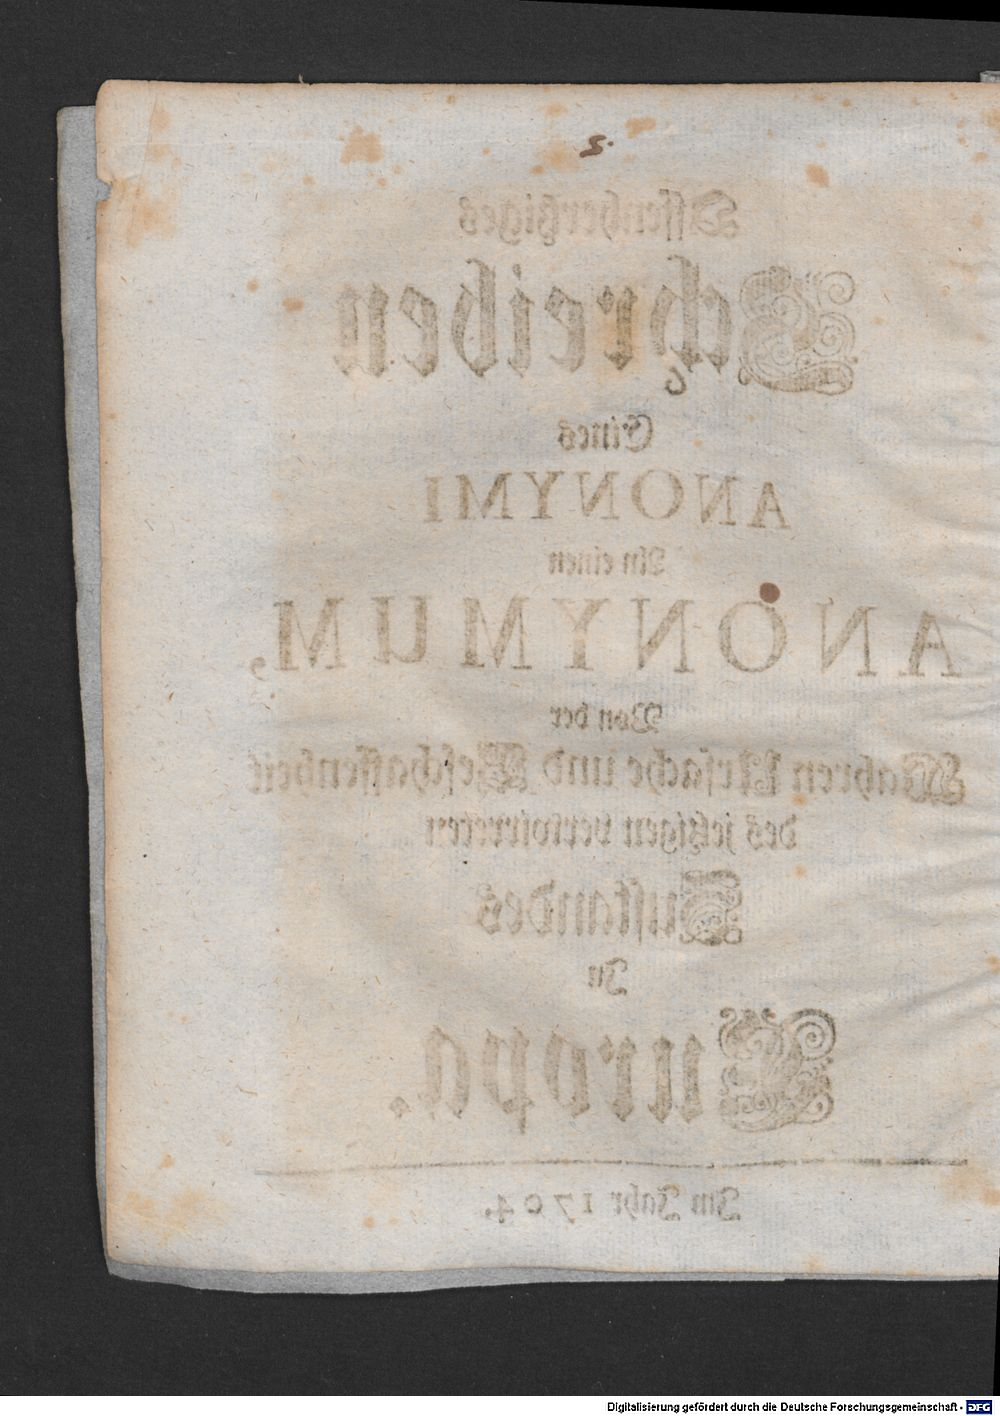 Offenhertziges
Schreiben
Eines
ANONYMI
An einen
ANONYMUM,
Von der
Wahren Ursache und Beschaffenheit
des jetzigen verwirreten
Zustandes
In
Europa.
Im Jahr 1704.
Digitalisierung gefördert durch die Deutsche Forschungsgemeinschaft - DFG